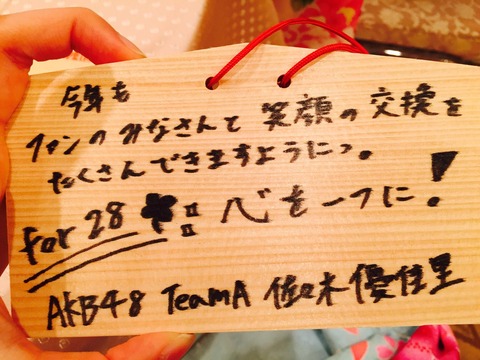 今年も
ファンのみなさんと 笑顔の交換を
たくさんできますようにっ。
for 28 !! 心を一つに!
AKB48 TeamA 佐々木優佳里